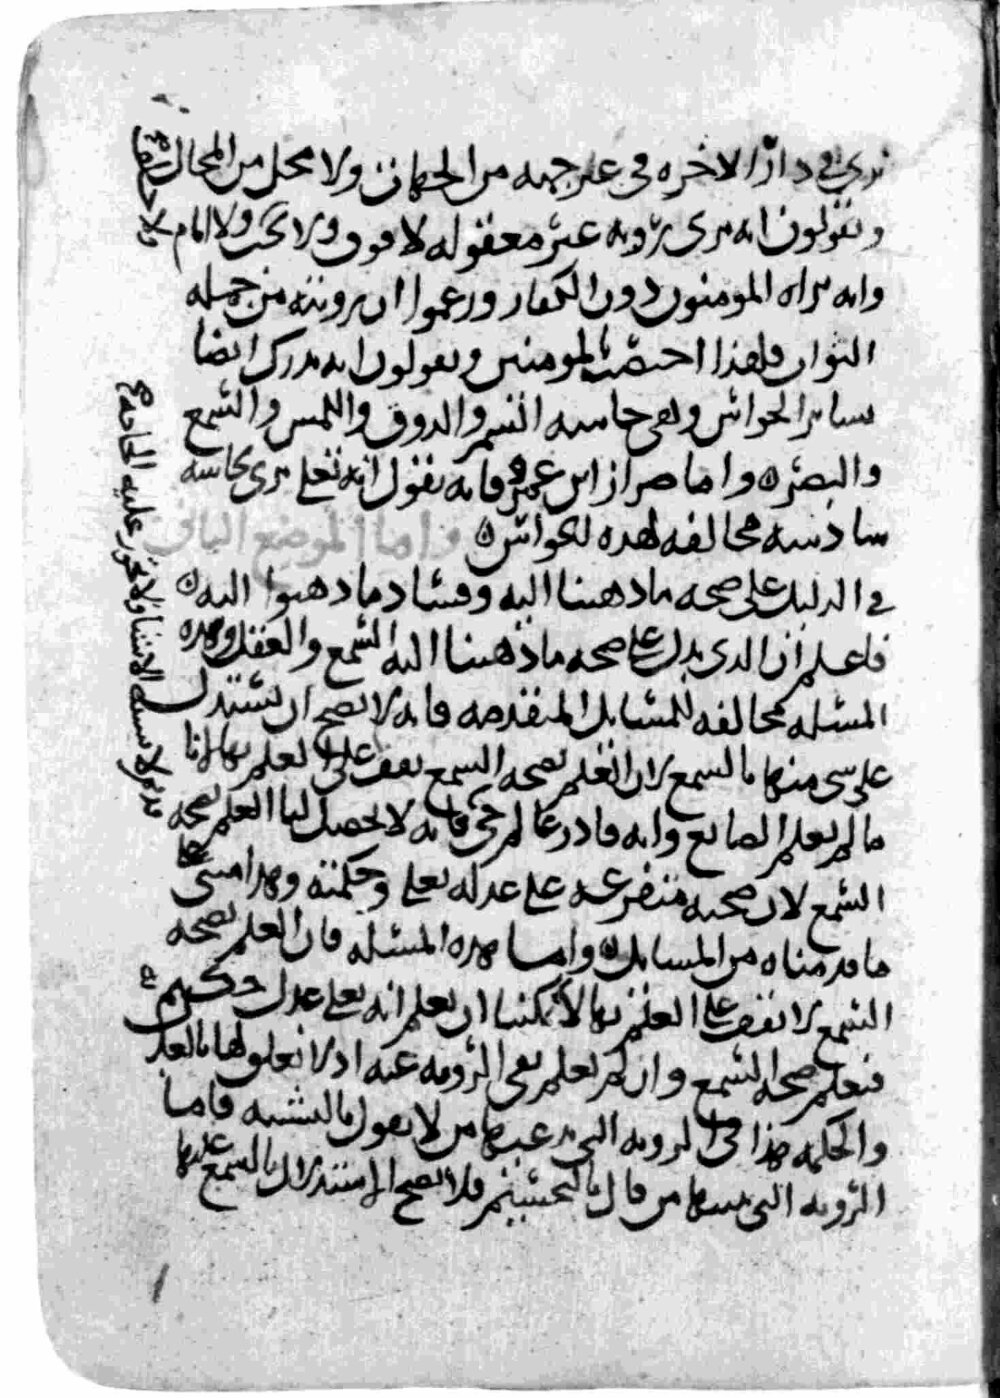 يرى في دار الاخره في غير جهه من الجهات ولا محل من المحال
ويقولون انه يرى رؤيه غير معقوله لا فوق ولا تحت ولا امام ولا خلف
وانه يراه المومنون دون الكفار وزعموا ان رويته من جمله
الثواب فلهذا اختصت بالمومنين ويقولون انه يدرك ايضا
بسائر الحواس وهي حاسه الشم والذوق واللمس والسمع
والبصر ٥ واما ضرار ابن عمرو فانه يقول انه تعلى يرى بحاسه
سادسه مخالفه لهذه الحواس ٥ واما الموضع الثاني
في الدليل على صحه ما ذهبنا اليه وفساد ما ذهبوا اليه ٥
فاعلم ان الذي يدل على صحه ما ذهبنا اليه السمع والعقل وهذه
المسئله مخالفه للمسايل المتقدمه فانه لا يصح ان نستدل
على شي منها بالسمع لان العلم بصحه السمع يقف على العلم بها لانا
ما لم نعلم الصانع وانه قادر عالم حي فانه لا يحصل لنا العلم بصحه
السمع لان صحته متفرعه على عدله تعلى وحكمته وهذا مبني على
ما قدمناه من المسايل ٥ واما هذه المسئله فان العلم بصحه
السمع لا يقف على العلم بها لانه يمكننا ان نعلم انه تعلى عدل حكيم
فنعلم صحه السمع وان لم نعلم نفي الرويه عنه اذ لا تعلق لها بالعدل
والحكمه هذا في الرويه التي يدعيها من لا يقول بالتشبيه فاما
الرؤيه التي يثبتها من قال بالتجسيم فلا يصح الاستدلال بالسمع عليها